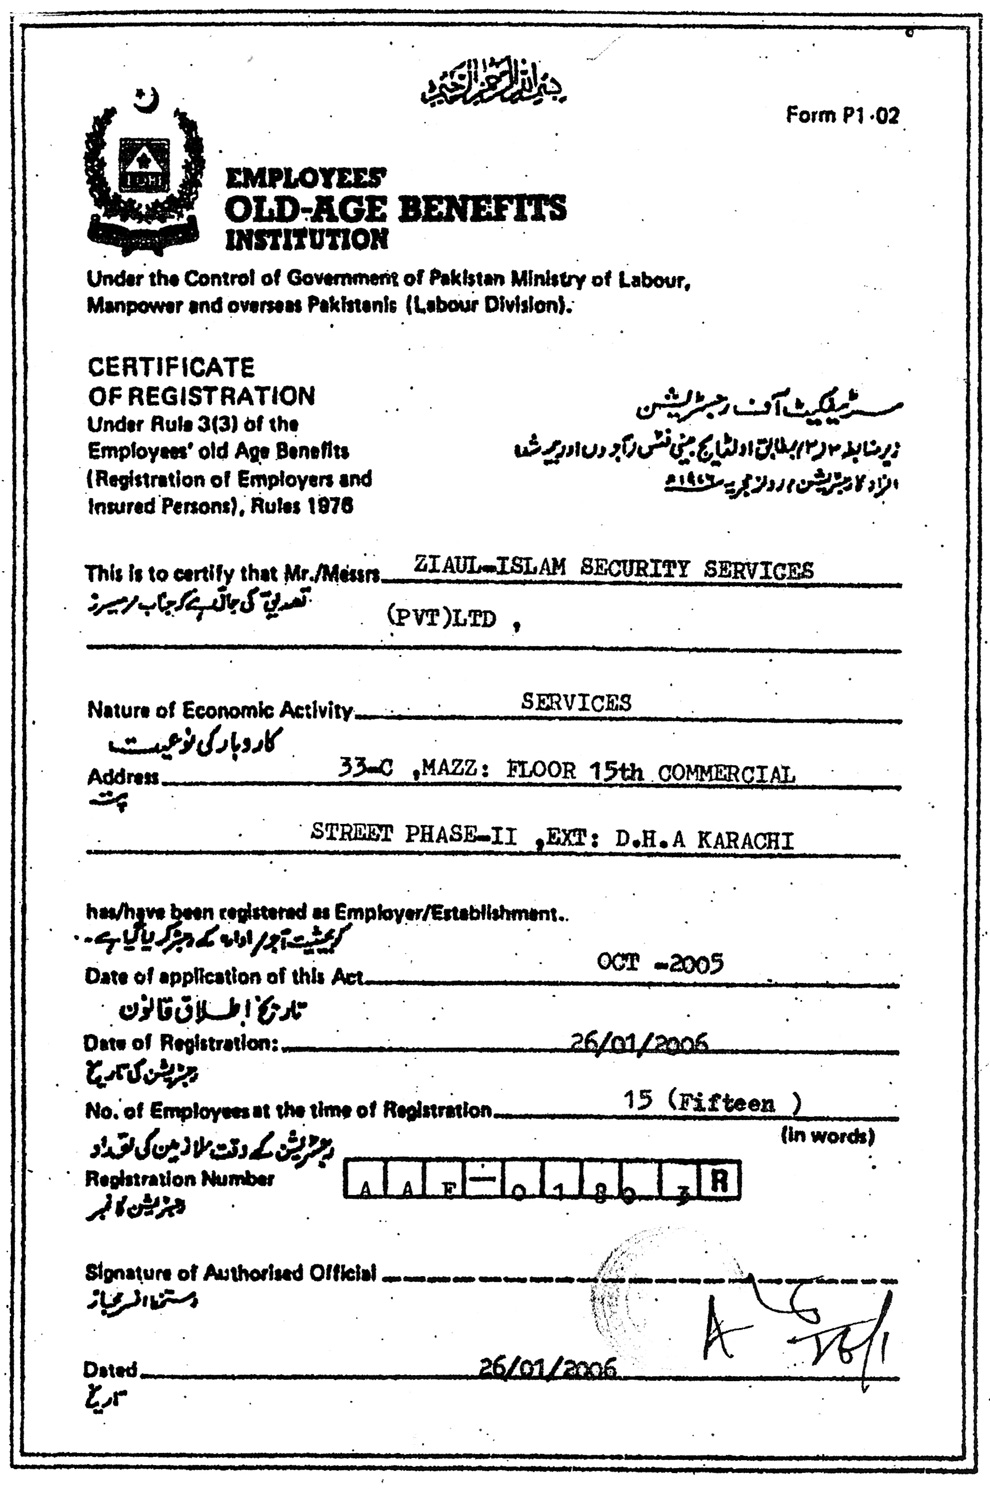 بسم الله الرحمن الرحيم
Form P1-02
EMPLOYEES'
OLD-AGE BENEFITS
INSTITUTION
Under the Control of Government of Pakistan Ministry of Labour,
Manpower and overseas Pakistanis (Labour Division).
CERTIFICATE
OF REGISTRATION
Under Rule 3(3) of the
Employees' old Age Benefits
(Registration of Employers and
Insured Persons), Rules 1976
سرٹیفکیٹ آف رجسٹریشن
زیر ضابطہ ۳(۳) بمطابق اولڈ ایج بینی فٹس (آجروں اور بیمہ شدہ
افراد کا رجسٹریشن) رولز مجریہ ۱۹۷۶ء
This is to certify that Mr./Messrs ZIAUL-ISLAM SECURITY SERVICES
تصدیق کی جاتی ہے کہ جناب / میسرز
(PVT)LTD ,
Nature of Economic Activity SERVICES
کاروبار کی نوعیت
Address 33-C ,MAZZ: FLOOR 15th COMMERCIAL
پتہ
STREET PHASE-II ,EXT: D.H.A KARACHI
has/have been registered as Employer/Establishment.
کو بحیثیت آجر / ادارہ کے رجسٹر کر لیا گیا ہے۔
Date of application of this Act OCT -2005
تاریخ اطلاق قانون
Date of Registration: 26/01/2006
رجسٹریشن کی تاریخ
No. of Employees at the time of Registration 15 (Fifteen )
(in words)
رجسٹریشن کے وقت ملازمین کی تعداد
Registration Number AAF-01803R
رجسٹریشن کا نمبر
Signature of Authorised Official
دستخط افسر مجاز
Dated 26/01/2006
تاریخ